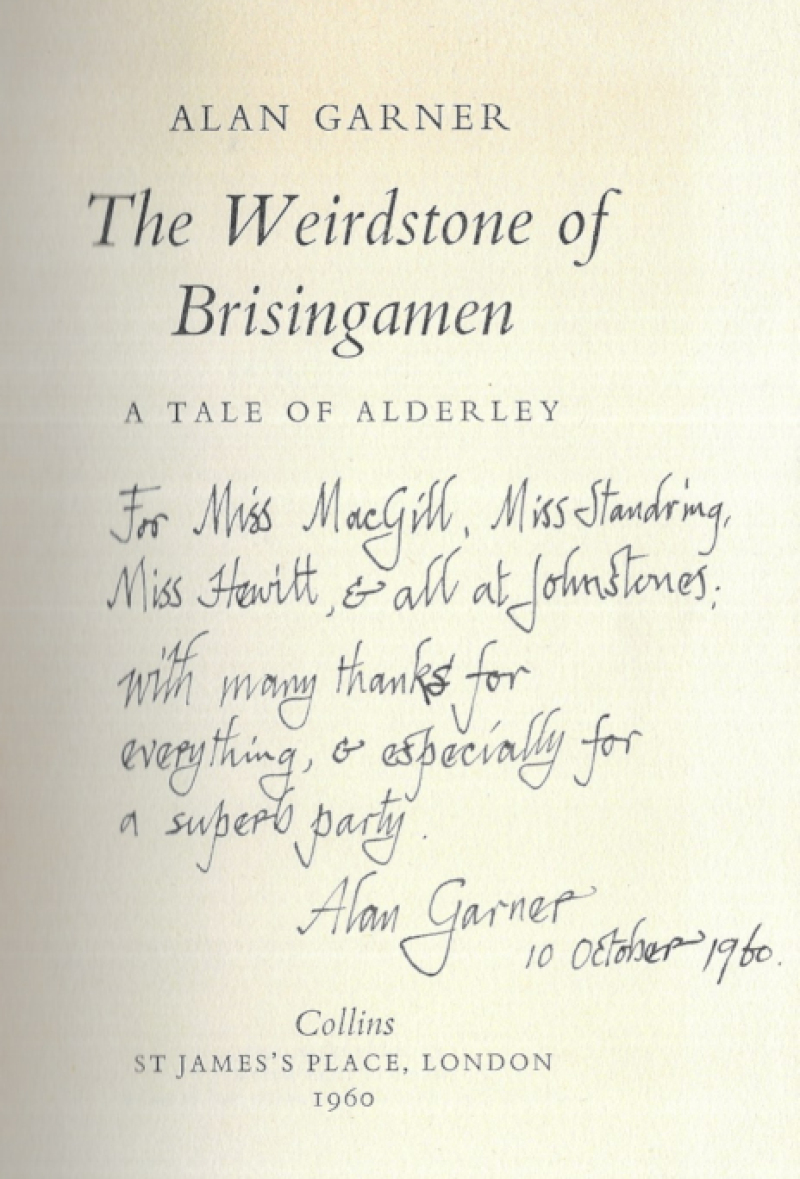 ALAN GARNER
The Weirdstone of
Brisingamen
A TALE OF ALDERLEY
For Miss MacGill, Miss Standring,
Miss Hewitt, & all at Johnstones;
with many thanks for
everything, & especially for
a superb party.
Alan Garner
10 October 1960.
Collins
ST JAMES'S PLACE, LONDON
1960